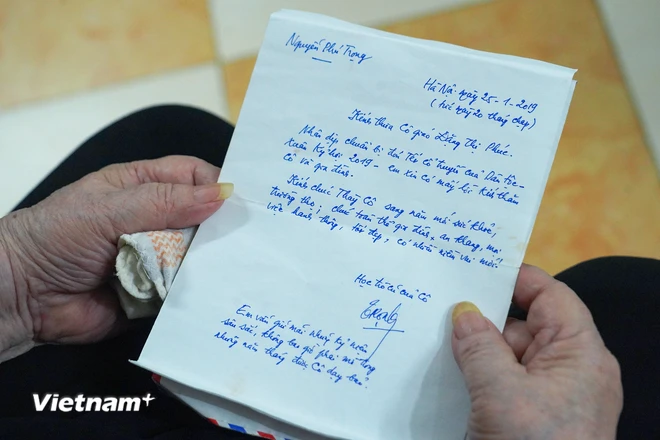 Nguyễn Phú Trọng
Hà Nội ngày 25-1-2019
(tức ngày 20 tháng chạp)
Kính thưa Cô giáo Đặng Thị Phúc.
Nhân dịp chuẩn bị đón Tết cổ truyền của Dân tộc-
Xuân Kỷ hợi 2019 - em xin có mấy lời kính thăm
Cô và gia đình.
Kính chúc Thầy Cô sang năm mới sức khoẻ,
trường thọ; chúc toàn thể gia đình an khang, mọi
việc hanh thông, tốt đẹp, có nhiều niềm vui mới.
Học trò cũ của Cô
Trọng
Em vẫn giữ mãi những kỷ niệm
sâu sắc, không bao giờ phai mờ trong
những năm tháng được Cô dạy bảo.
Vietnam+